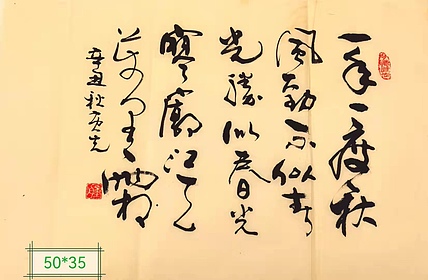 一年一度秋
風勁不似春
光勝似春光
寥廓江天
萬里霜
辛丑秋
50*35